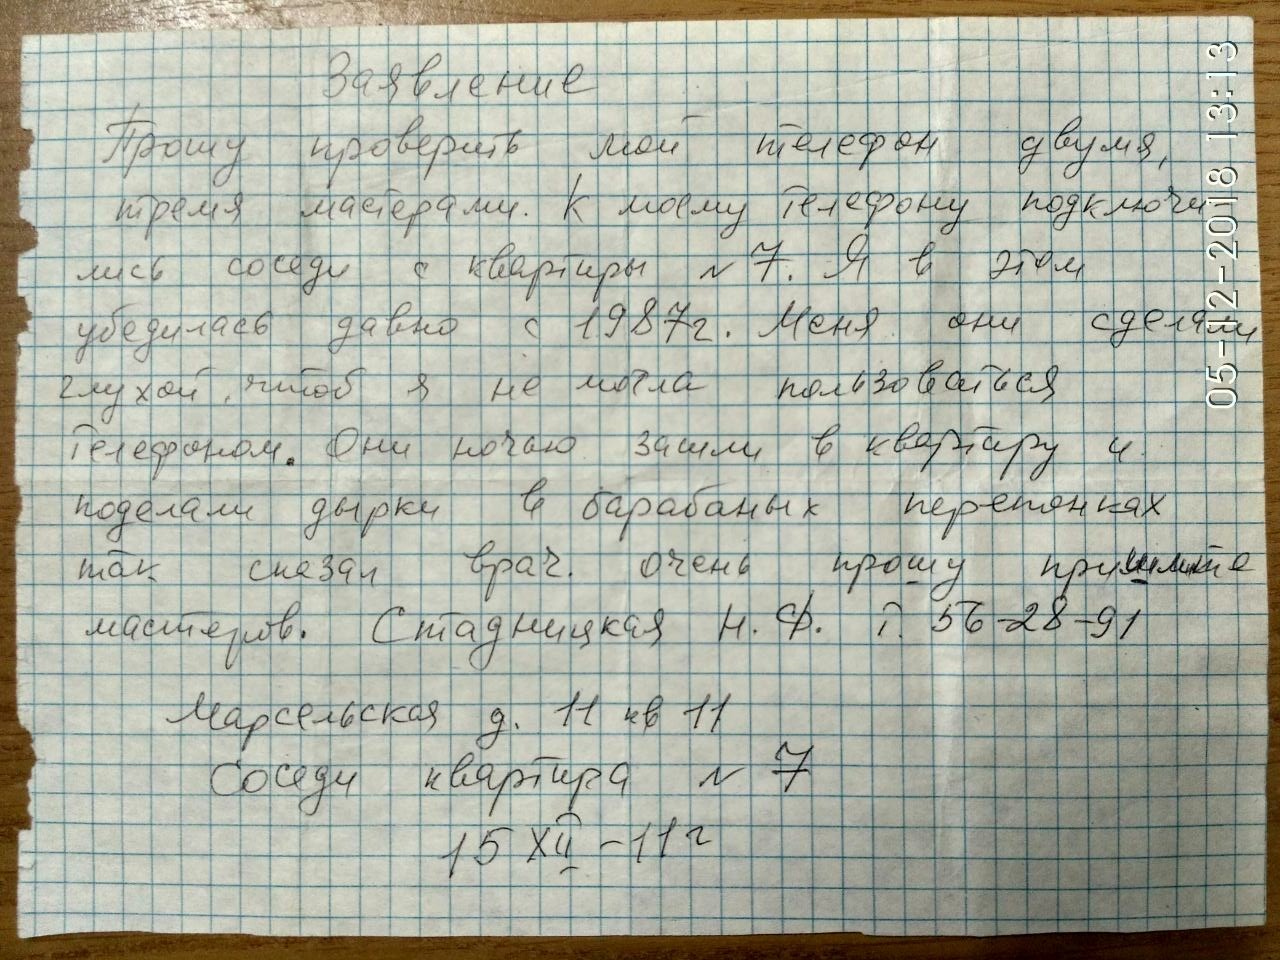 Заявление
Прошу проверить мой телефон двумя,
тремя мастерами. К моему телефону подключи
лись соседи с квартиры N 7. Я в этом
убедилась давно с 1987г. Меня они сделали
глухой, чтоб я не могла пользоваться
телефоном. Они ночью зашли в квартиру и
поделали дырки в барабаных перепонках
так сказал врач. очень прошу пришлите
мастеров. Стадницкая Н.Ф. т. 56-28-91
Марсельская д. 11 кв 11
Соседи квартира N 7
15 XII -11г
05-12-2018 13:13